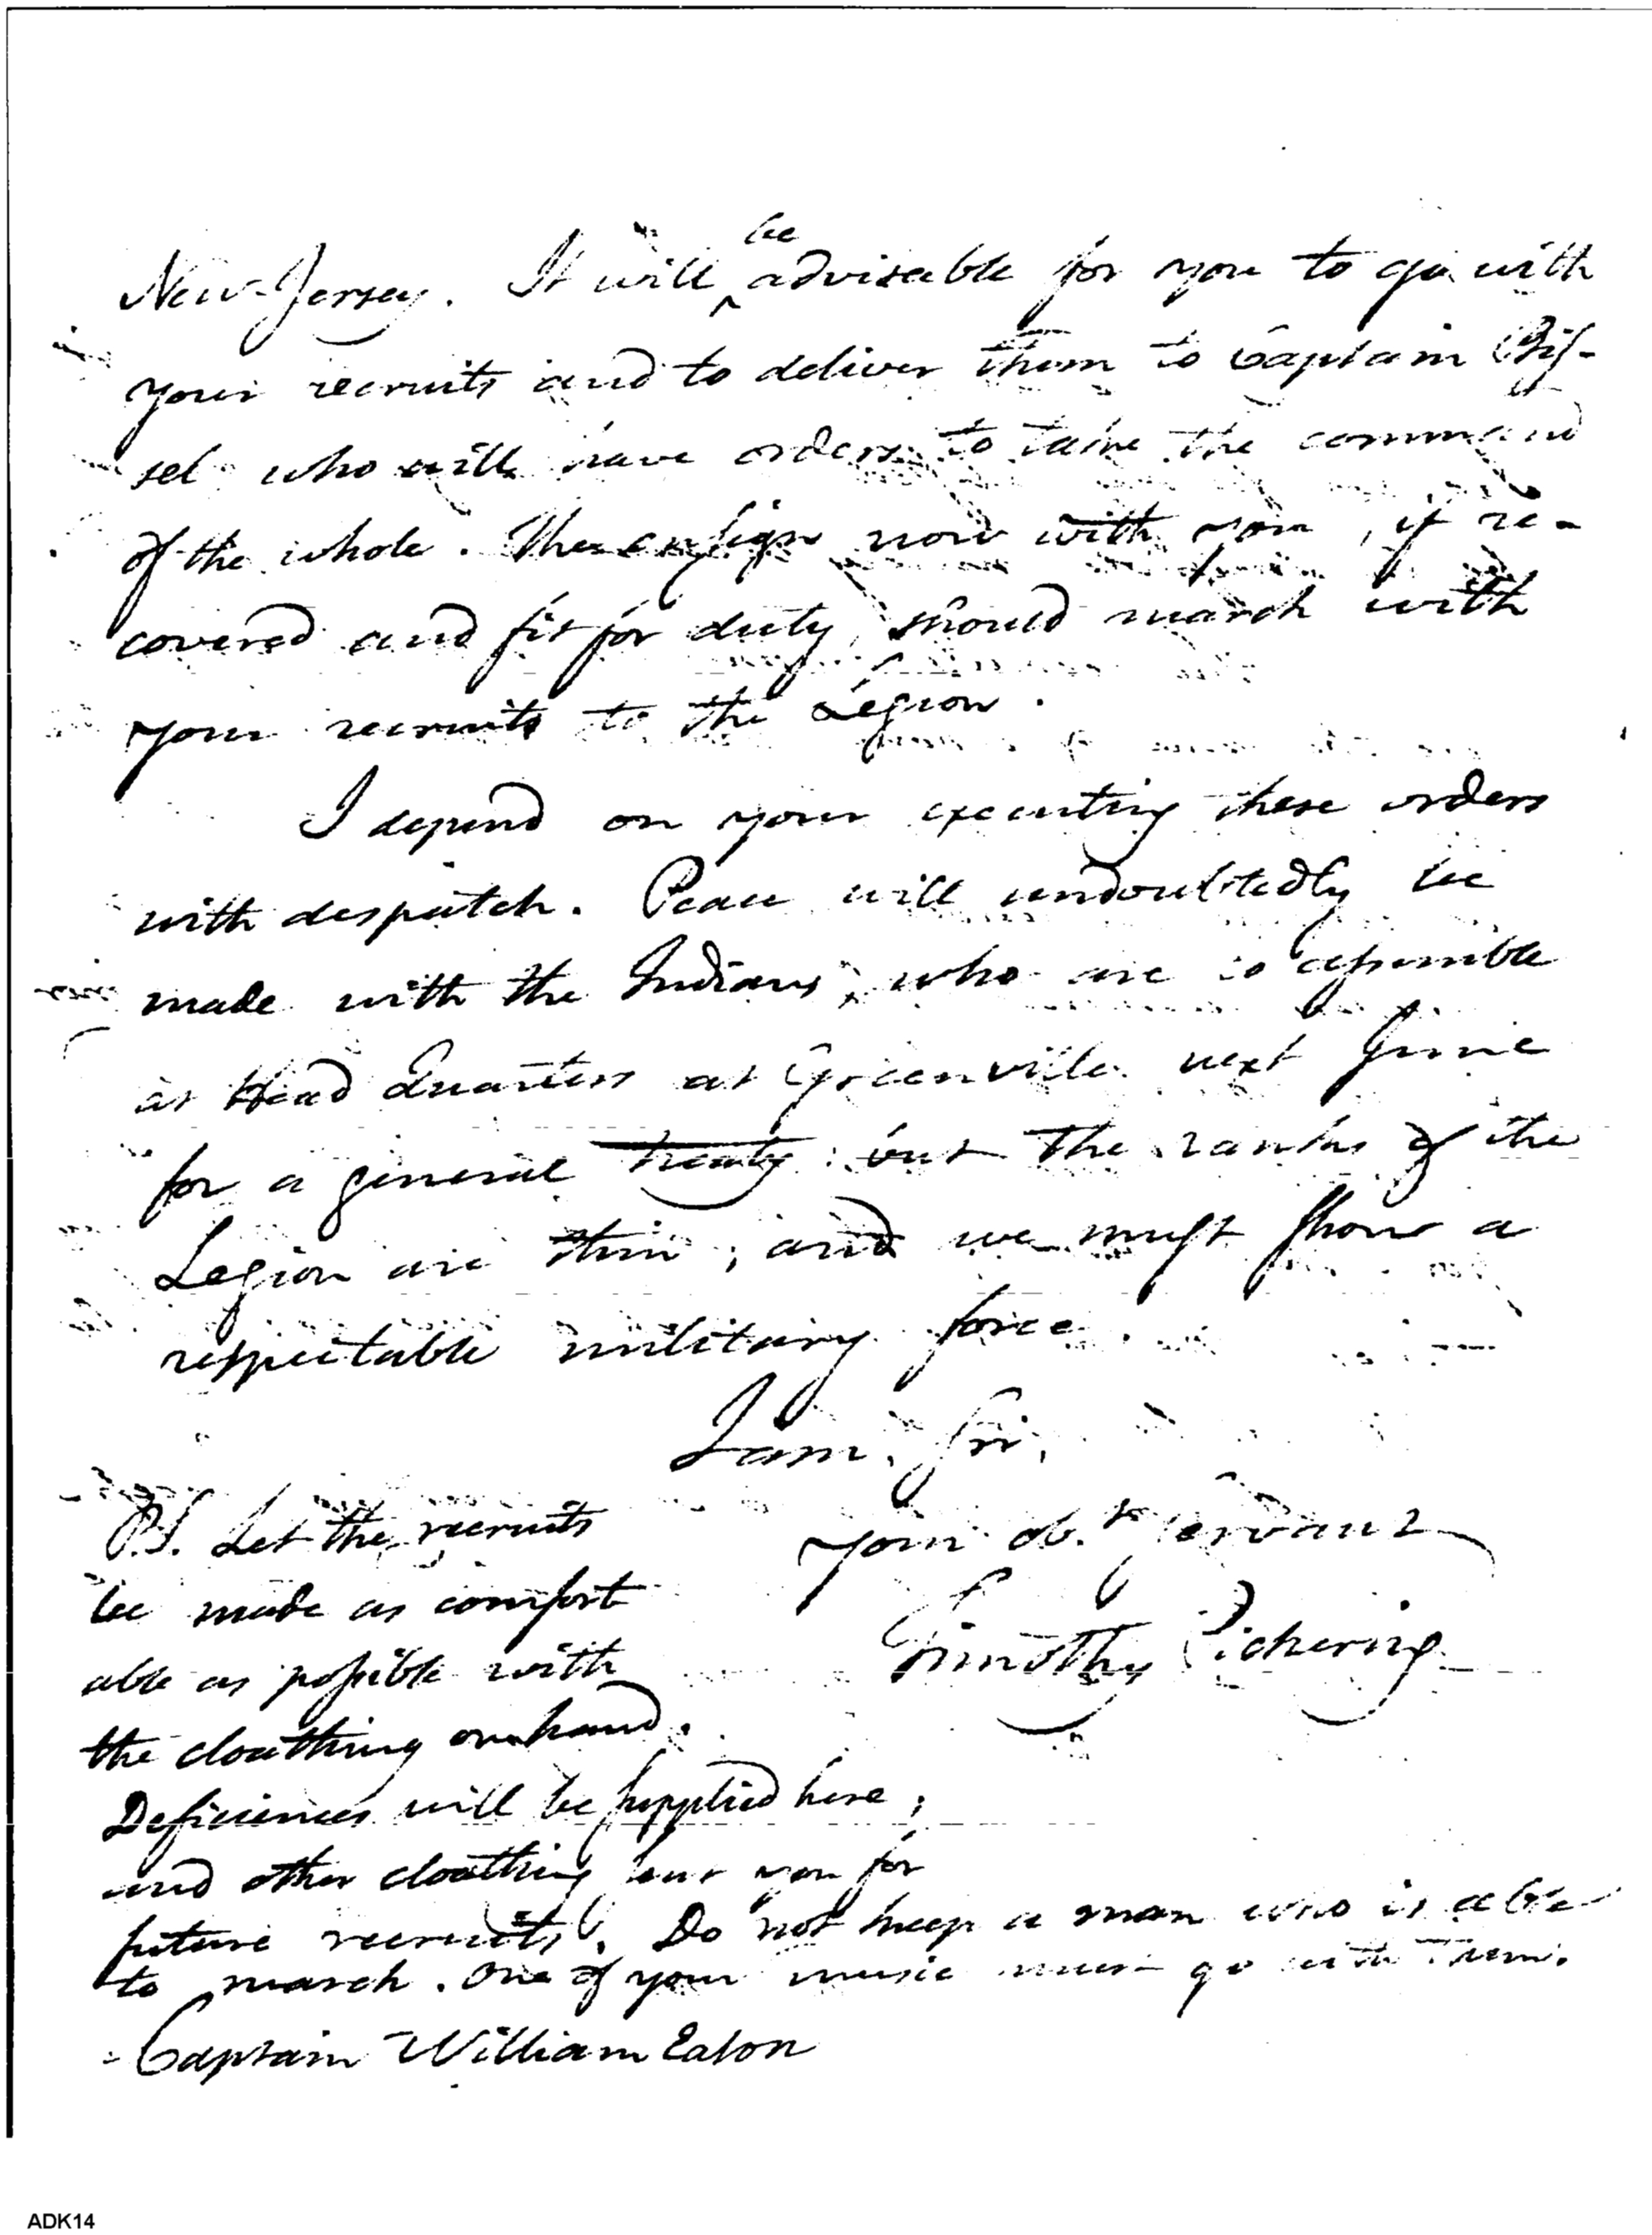 be
New-Jersey. It will ‸ advisable for you to go with
your recruits and to deliver them to Captain Bis-
sel who will have orders to take the command
of the whole. The ensign now with you, if re-
covered and fit for duty, should march with
your recruits to the Legion.
I depend on your executing these orders
with despatch. Peace will undoubtedly be
made with the Indians, who are to assemble
at Head Quarters at Greenville next June
for a general treaty: but the ranks of the
Legion are thin; and we must show a
respectable military force.
I am, sir,
your ob.t servant
Timothy Pickering
P.S. Let the recruits
be made as comfort
able as possible with
the cloathing on hand.
Deficiences will be supplied here;
and other cloathing sent you for
future recruits. Do not keep a man who is able
to march. One of your music must go with them.
Captain William Eaton
ADK14